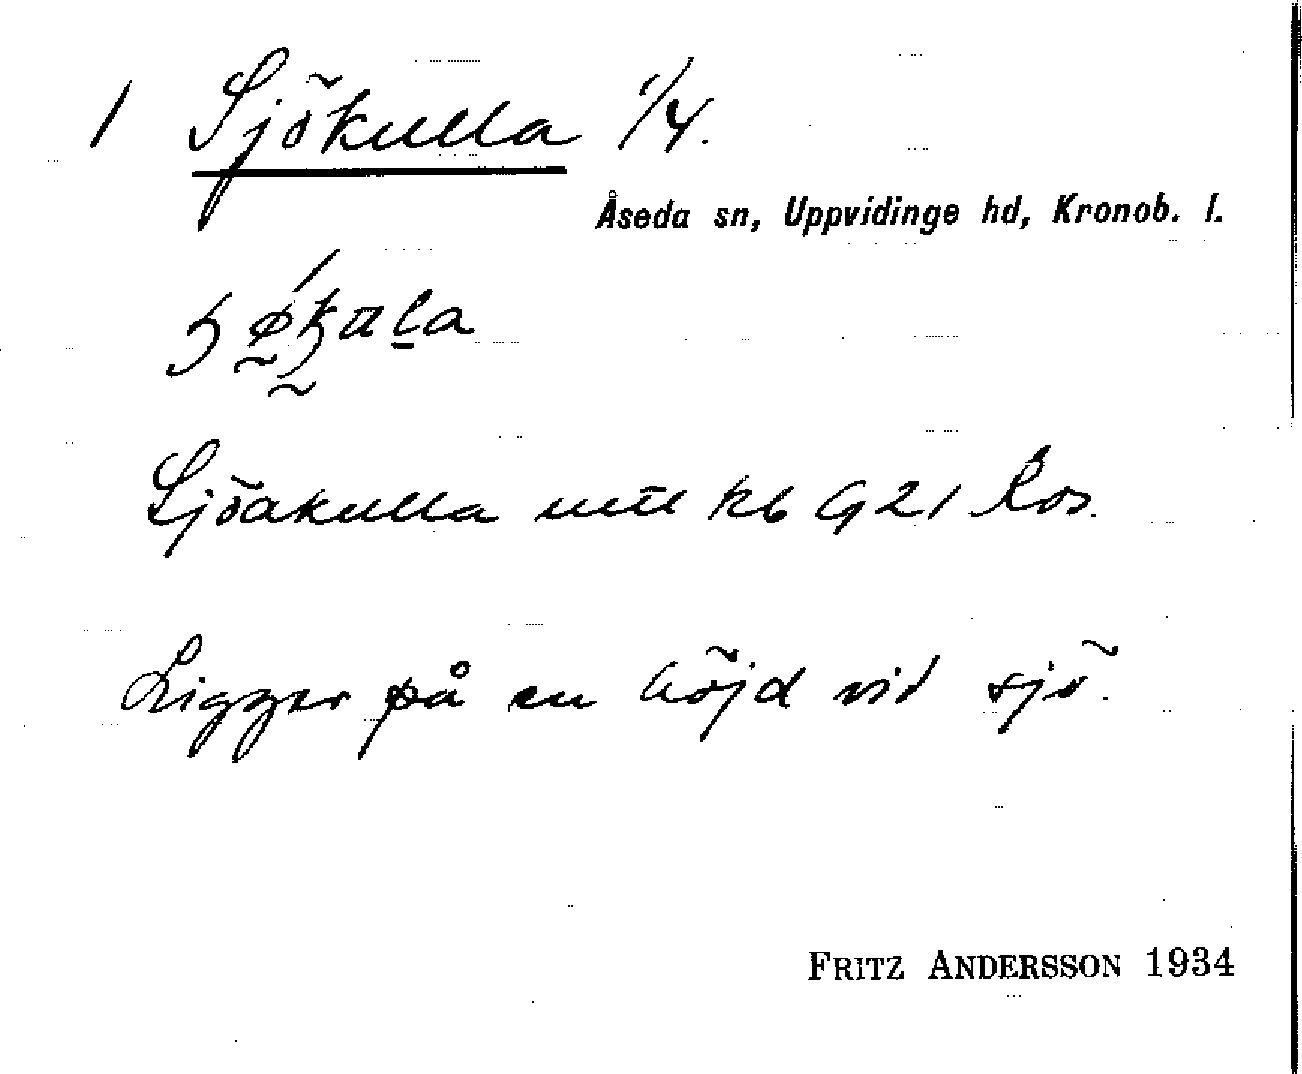 1 Sjökulla 1/4.
Åseda sn, Uppvidinge hd, Kronob. l.
Sjöakulla utt kb G21 Ros.
Ligger på en höjd vid sjö.
FRITZ ANDERSSON 1934